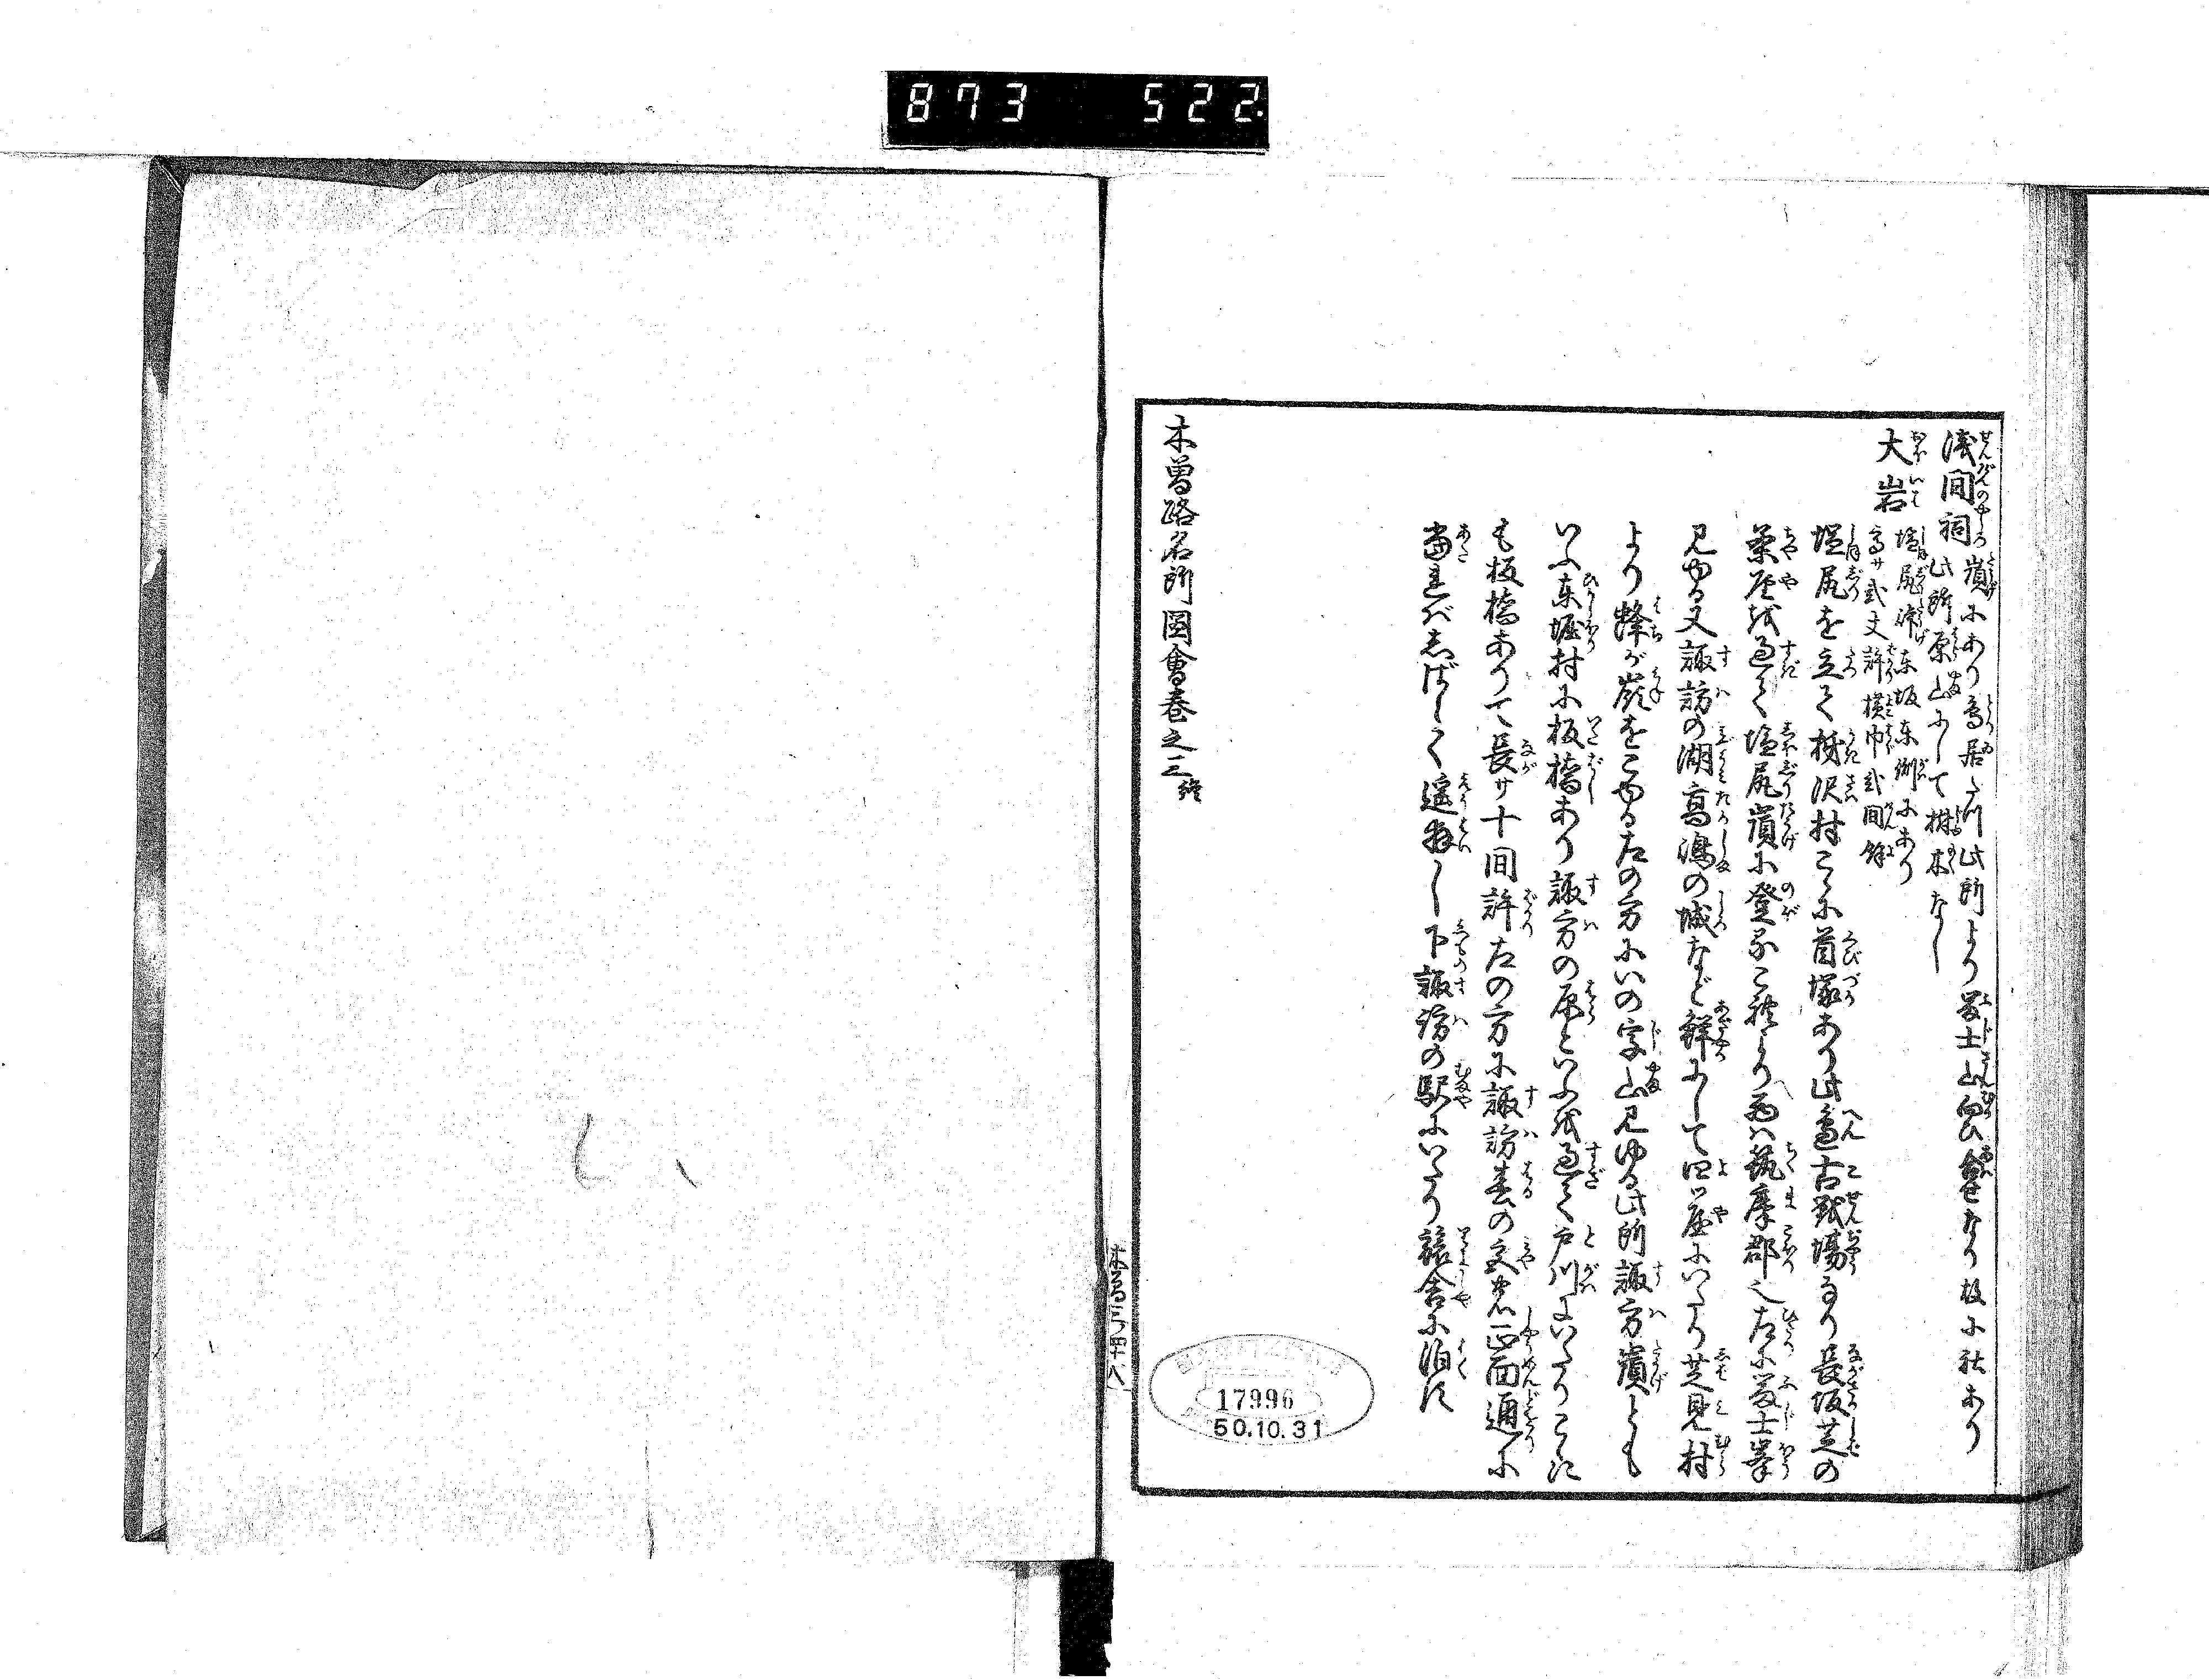 873 522.
浅間祠 嶺にあり鳥居たつ此所より冨士山向ひ合せなり坂に社あり
此所原山にして樹木なし
大岩 塩尻峠東坂東側にあり
高サ弐丈許横巾弐間餘
塩尻を立て柿沢村こゝに首塚あり此邉古戦場なり長坂芝の
茶屋を過て塩尻嶺に登るこれより西ハ筑摩郡也左に冨士峯
見ゆる又諏訪の湖高嶋の城など鮮にして四ツ屋にいたり芝見村
より蜂が嶺をこゆる左の方にいの字山見ゆる此所諏方嶺とも
いふ東堀村に板橋あり諏方の原といふを過て戸川にいたりこゝに
も板橋ありて長サ十間許左の方に諏訪春の宮の正面通に
當ればしばしく遥拝し下諏訪の駅にいたり旅舎に泊す
木曽路名所圖會巻之三終
木曽三ノ四十八
17996
50.10.31